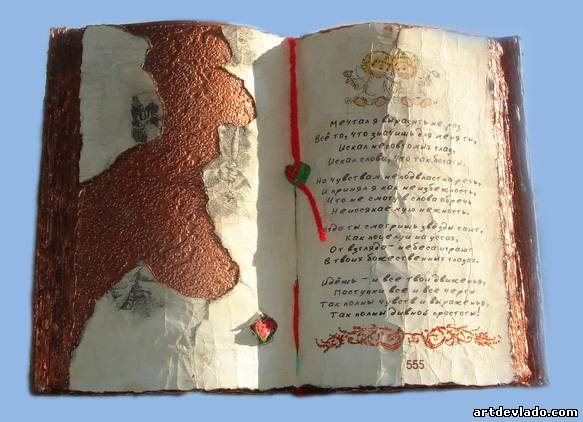 Мечтал я выразить не раз
Всё то, что значишь для меня ты,
Искал неповторимых глаз,
Искал слова, что так богаты,
Но чувствам неподвластна речь,
И принял я как неизбежность,
Что не смогу в слова обречь
Неиссякаемую нежность.
Когда ты смотришь звёзды тают,
Как поцелуй на устах,
От взгляда - небеса играют
В твоих божественных глазах.
Идёшь - и все твои движенья,
Поступки все и все черты
Так полны чувств и выраженья,
Так полны дивной простоты!
555
artdevlado.com